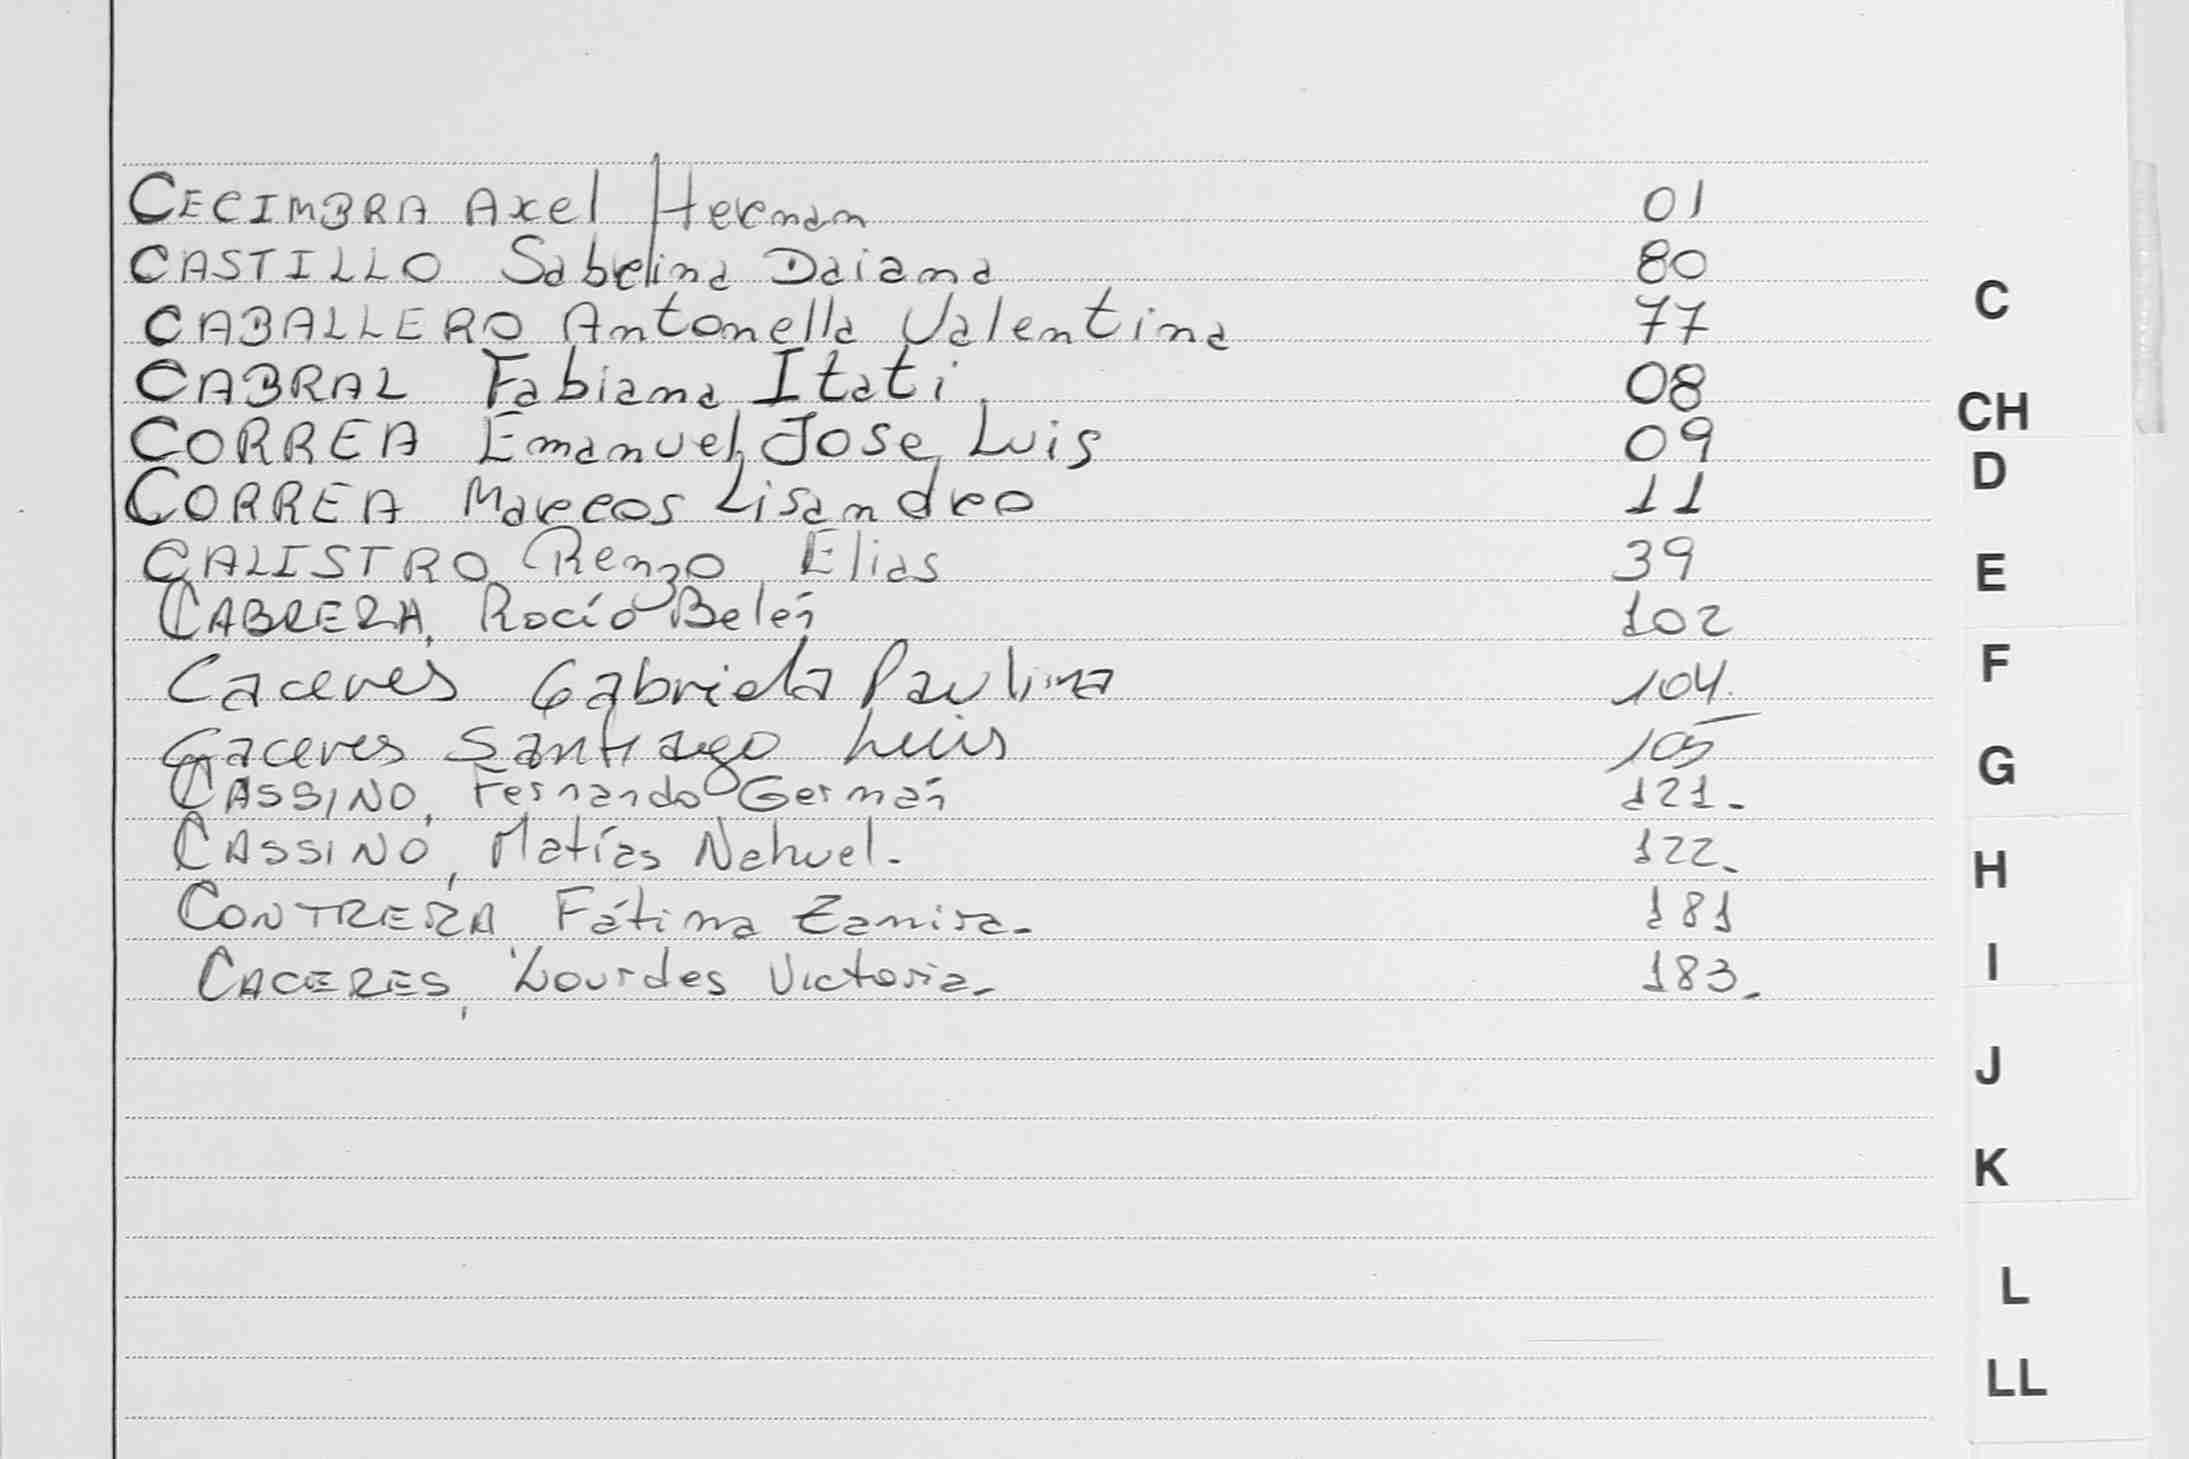 CECIMBRA Axel Hernan 01
CASTILLO Sabelina Daiana 80
CABALLERO Antonella Valentina 77
CABRAL Fabiana Itati 08
CORREA Emanuel Jose Luis 09
CORREA Marcos Lisandro 11
CALISTRO Renzo Elias 39
CABRERA, Rocío Belén 102
Caceres Gabriela Paulina 104.
Caceres Santiago Luis 105
CASSINO, Fernando Germán 121.
CASSINO, Matías Nahuel. 122.
CONTRERA Fátima Zamira. 181
CACERES, Lourdes Victoria. 183.
C
CH
D
E
F
G
H
I
J
K
L
LL